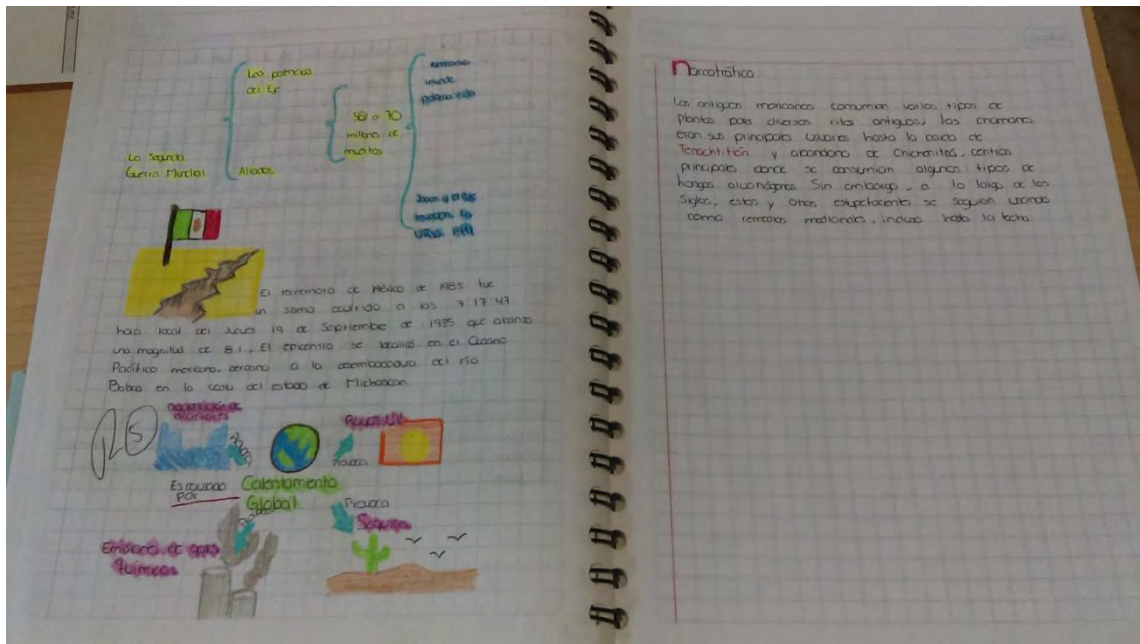 La Segunda
Guerra Mundial
Las potencias
del Eje
Aliados
50 o 70
millones de
muertos
Alemania
invade
Polonia
Japon
invaden la
URSS 1941
El terremoto de México de 1985 fue
un sismo ocurrido a las 7:17:47
hora local del Jueves 19 de Septiembre de 1985 que alcanzo
una magnitud de 8.1. El epicentro se localizó en el Oceano
Pacífico mexicano, cercano a la desembocadura del río
Balsas en la costa del estado de Michoacan
Rayos UV
Provoca
Es causado
por
Calentamiento
Global
Provoca
Sequias
Emisiones de gases
Químicos
Narcotráfico
Los antiguos mexicanos consumian varios tipos de
plantas para diversos ritos antiguos, los chamanes
eran sus principales usuarios hasta la caida de
Tenochtitlán y abandono de Chichenitzá, centros
principales donde se consumian algunos tipos de
hongos alucinógenos. Sin embargo, a lo largo de los
Siglos, estos y otros estupefacientes se seguian usando
como remedios medicinales, incluso hasta la fecha